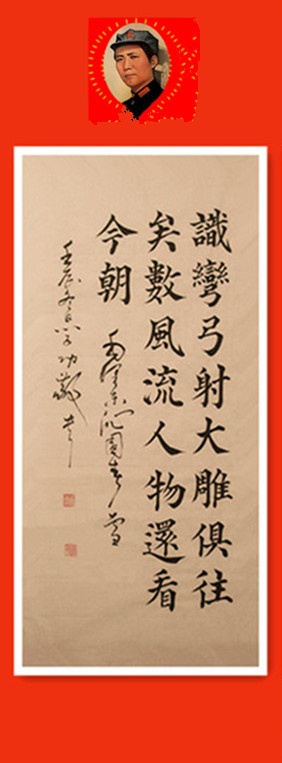 識彎弓射大雕俱往
矣數風流人物還看
今朝 毛澤東沁園春雪
壬辰冬日